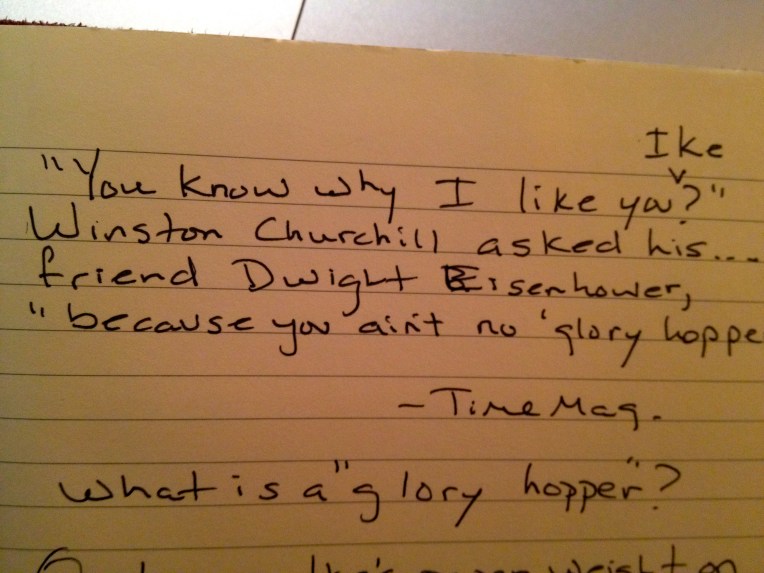 Ike
"You know why I like you?"
Winston Churchill asked his...
friend Dwight Eisenhower,
"because you ain't no 'glory hoppe
- Time Mag.
What is a "glory hopper"?
weight on